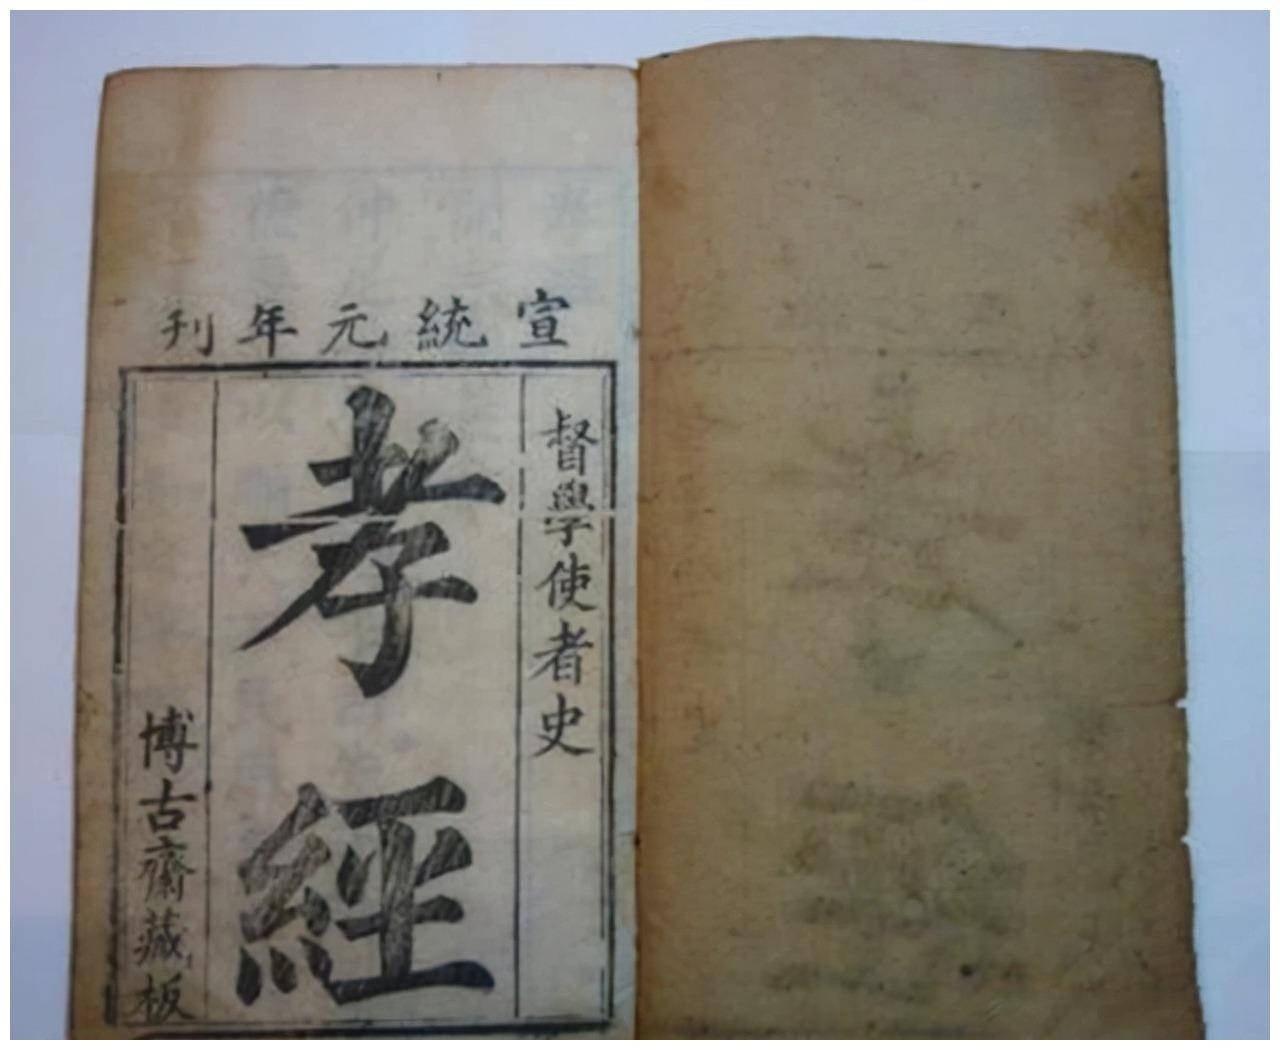 宣統元年刊
督學使者史
孝經
博古齋藏板